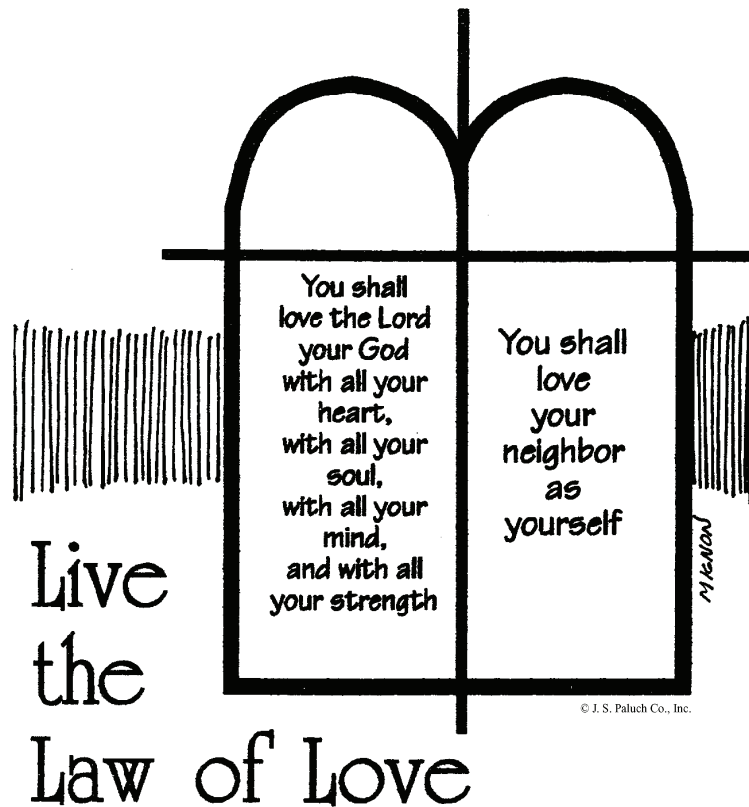 You shall
love the Lord
your God
with all your
heart,
with all your
soul,
with all your
mind,
and with all
your strength
You shall
love
your
neighbor
as
yourself
MIGNON
© J. S. Paluch Co., Inc.
Live
the
Law of Love